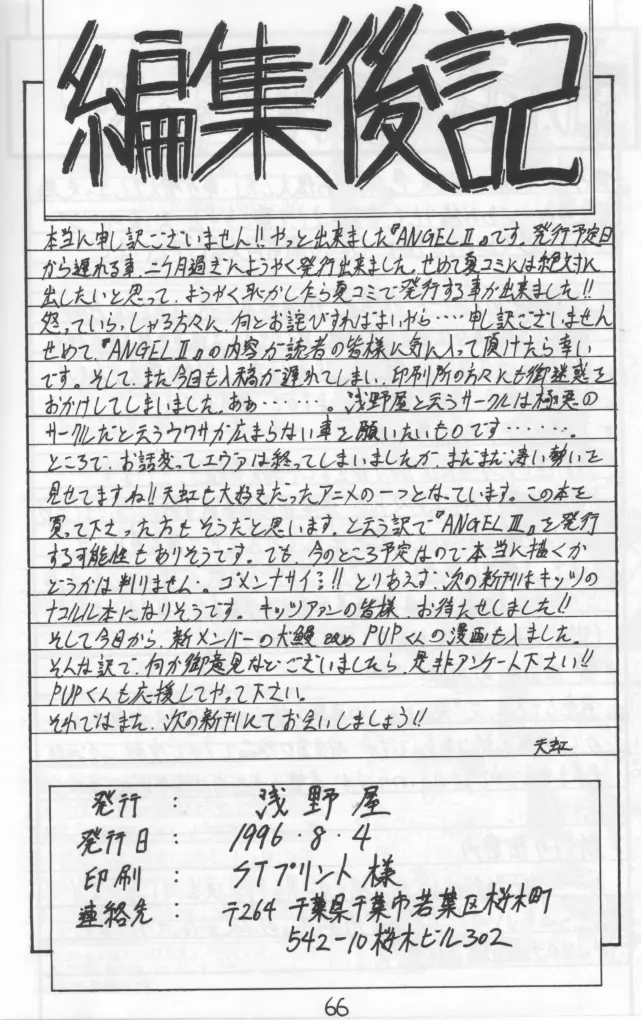 編集後記
本当に申し訳ございません!!やっと出来ました『ANGELⅡ』です。発行予定日
から遅れる事、二ケ月過ぎにようやく発行出来ました。せめて夏コミには絶対に
出したいと思って、ようやく恥かしたら夏コミで発行する事が出来ました!!
怒っていらっしゃる方々に、何とお詫びすればよいやら‥‥申し訳ございません
せめて、『ANGELⅡ』の内容が読者の皆様に気に入って頂けたら幸い
です。そして、また今回も入稿が遅れてしまい、印刷所の方々にも御迷惑を
おかけしてしまいました。ああ‥‥‥‥。浅野屋と云うサークルは極悪の
サークルだと云うウワサが広まらない事を願いたいものです‥‥‥。
ところで、お話変ってエヴァは終ってしまいましたが、まだまだ凄い勢いを
見せてますね!!天虹も大好きだったアニメの一つとなっています。この本を
買って下さった方もそうだと思います。と云う訳で『ANGELⅢ』を発行
する可能性もありそうです。でも、今のところ予定なので本当に描くか
どうかは判りません。ゴメンナサイ!!とりあえず、次の新刊はキッツの
ナコルル本になりそうです。キッツファンの皆様、お待たせしました!!
そして今回から、新メンバーの犬鰻 改め PUPくんの漫画も入ました。
そんな訳で、何か御意見などございましたら、是非アンケート下さい!!
PUPくんも応援してやって下さい。
それではまた、次の新刊にてお会いしましょう!!
天虹
発行 : 浅野屋
発行日 : 1996・8・4
印刷 : STプリント様
連絡先 : 〒264 千葉県千葉市若葉区桜木町
542-10桜木ビル302
66